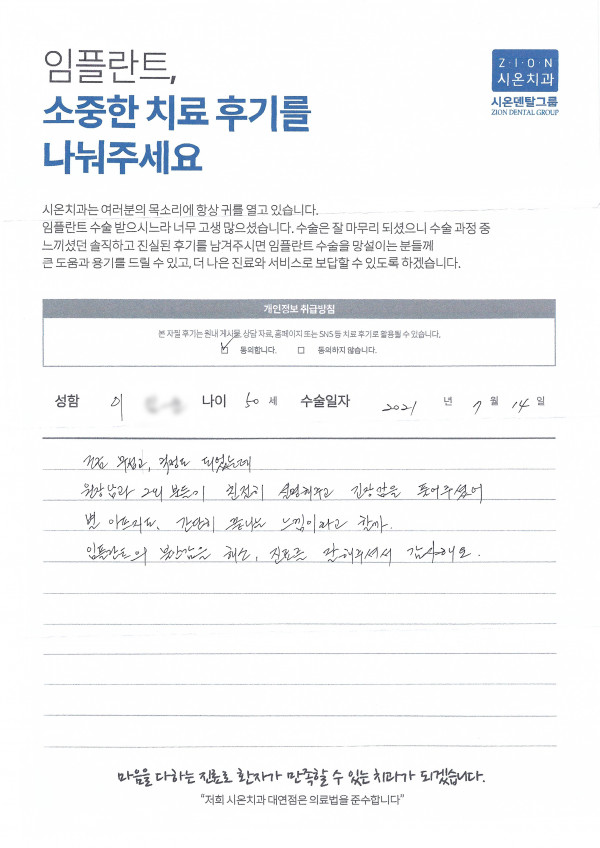 임플란트,
소중한 치료 후기를
나눠주세요
Z·I·O·N
시온치과
시온덴탈그룹
ZION DENTAL GROUP
시온치과는 여러분의 목소리에 항상 귀를 열고 있습니다.
임플란트 수술 받으시느라 너무 고생 많으셨습니다. 수술은 잘 마무리 되셨으니 수술 과정 중
느끼셨던 솔직하고 진실된 후기를 남겨주시면 임플란트 수술을 망설이는 분들께
큰 도움과 용기를 드릴 수 있고, 더 나은 진료와 서비스로 보답할 수 있도록 하겠습니다.
개인정보 취급방침
본 자필 후기는 원내 게시물, 상담 자료, 홈페이지 또는 SNS 등 치료 후기로 활용될 수 있습니다.
동의합니다. 동의하지 않습니다.
성함 이 나이 50 세 수술일자 2021 년 7 월 14 일
무섭고, 걱정도 되었는데
원장님과 그외 모든이 친절히 설명해주고 긴장감을 풀어주셨어
별 아프지도, 간단히 끝나는 느낌이라고 할까.
임플란트의 불안감을 해소, 진료를 잘해주셔서 감사해요.
마음을 다하는 진료로 환자가 만족할 수 있는 치과가 되겠습니다.
“저희 시온치과 대연점은 의료법을 준수합니다”